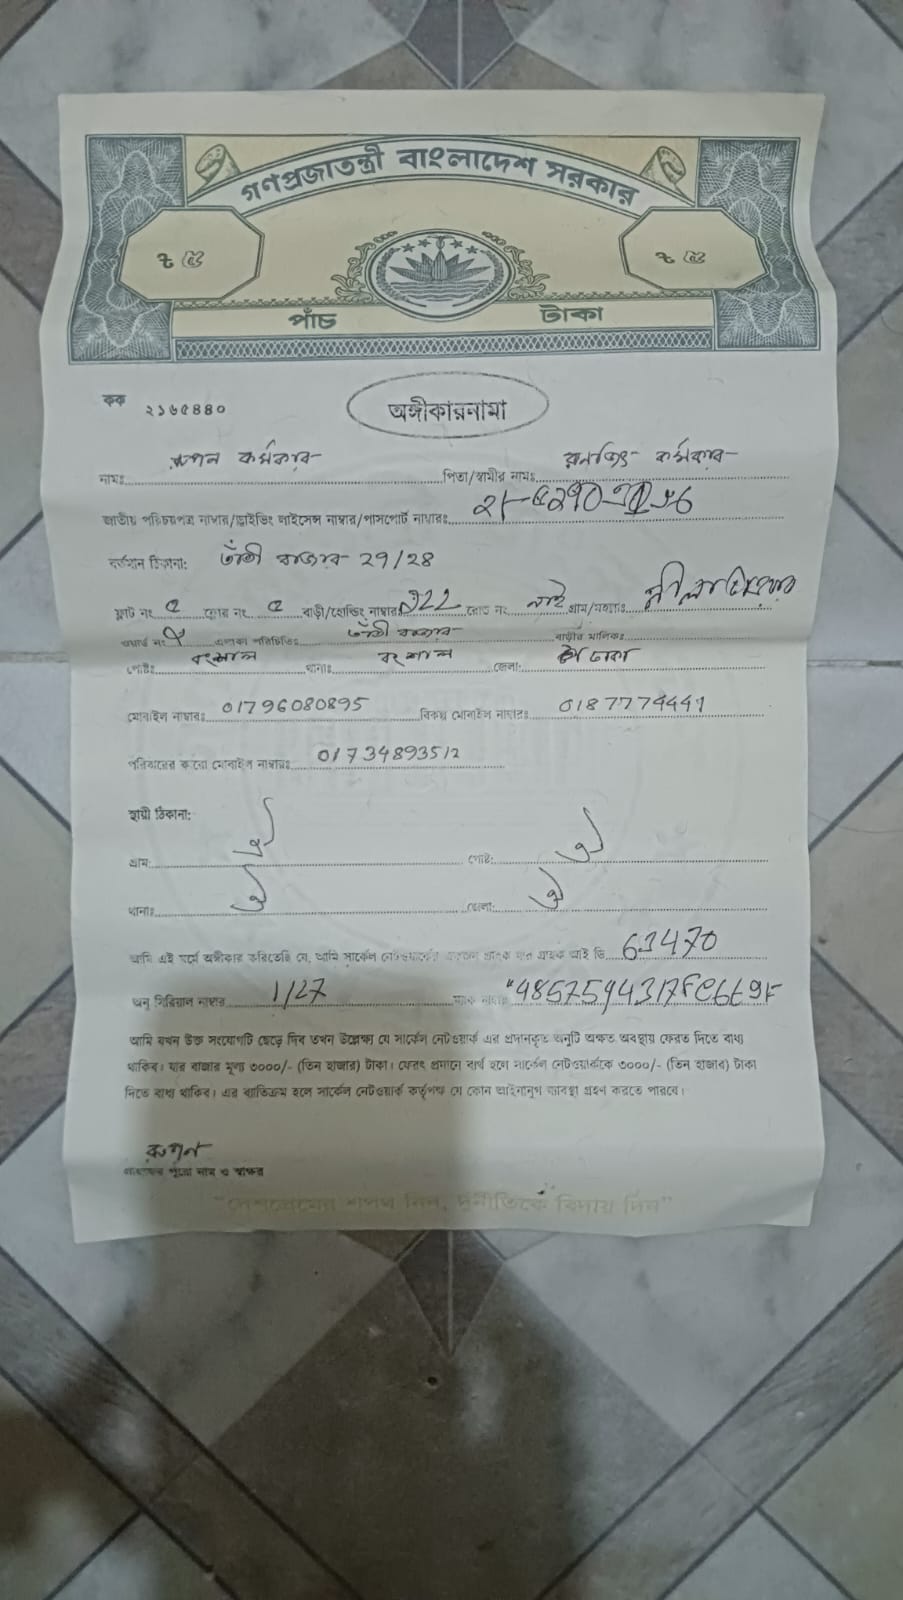 গণপ্রজাতন্ত্রী বাংলাদেশ সরকার
৳ ৫ ৳ ৫
পাঁচ টাকা
কক ২১৬৫৪৪০
অঙ্গীকারনামা
নামঃ রুপন কর্মকার পিতা/স্বামীর নামঃ রনজিৎ কর্মকার
জাতীয় পরিচয়পত্র নাম্বার/ড্রাইভিং লাইসেন্স নাম্বার/পাসপোর্ট নাম্বারঃ
বর্তমান ঠিকানা: তাঁতী বাজার 29/28
ফ্লাট নং ৫ ফ্লোর নং ৫ বাড়ী/হোল্ডিং নাম্বার রোড নং নাই গ্রাম/মহল্লাঃ
ওয়ার্ড নং এলাকা পরিচিতিঃ তাঁতী বাজার বাড়ীর মালিকঃ
পোষ্টঃ বংশাল থানাঃ বংশাল জেলা: ঢাকা
মোবাইল নাম্বারঃ 01796080895 বিকল্প মোবাইল নাম্বারঃ 01877774441
পরিবারের কারো মোবাইল নাম্বারঃ 01734893512
স্থায়ী ঠিকানা:
গ্রাম: পোষ্ট:
থানাঃ জেলা:
আমি এই মর্মে অঙ্গীকার করিতেছি যে, আমি সার্কেল নেটওয়ার্কের একজন গ্রাহক যার গ্রাহক আই ডি 61470
অনু সিরিয়াল নাম্বার 1/27 ম্যাক নাম্বার
আমি যখন উক্ত সংযোগটি ছেড়ে দিব তখন উল্লেখ্য যে সার্কেল নেটওয়ার্ক এর প্রদানকৃত অনুটি অক্ষত অবস্থায় ফেরত দিতে বাধ্য
থাকিব। যার বাজার মূল্য ৩০০০/- (তিন হাজার) টাকা। ফেরৎ প্রদানে ব্যর্থ হলে সার্কেল নেটওয়ার্ককে ৩০০০/- (তিন হাজার) টাকা
দিতে বাধ্য থাকিব। এর ব্যতিক্রম হলে সার্কেল নেটওয়ার্ক কর্তৃপক্ষ যে কোন আইনানুগ ব্যবস্থা গ্রহণ করতে পারবে।
রুপন
গ্রাহকের পুরো নাম ও স্বাক্ষর
"দেশপ্রেমের শপথ নিন, দুর্নীতিকে বিদায় দিন"